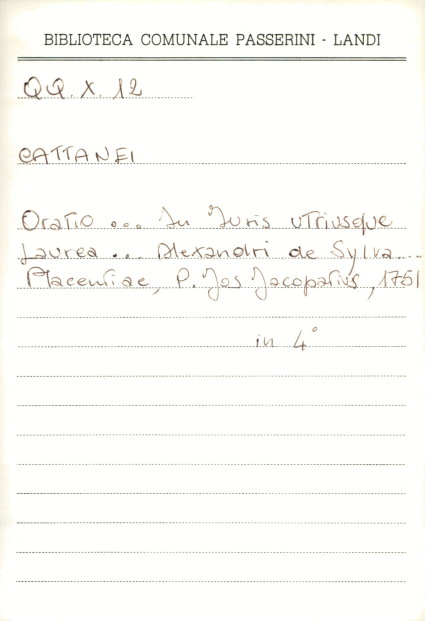 BIBLIOTECA COMUNALE PASSERINI - LANDI
QQ. X. 12
CATTANEI
Oratio ... In Juris utriusque
Laurea ... Alexandri de Sylva ...
Placentiae, P. Jos Jacopatius, 1751
in 4°